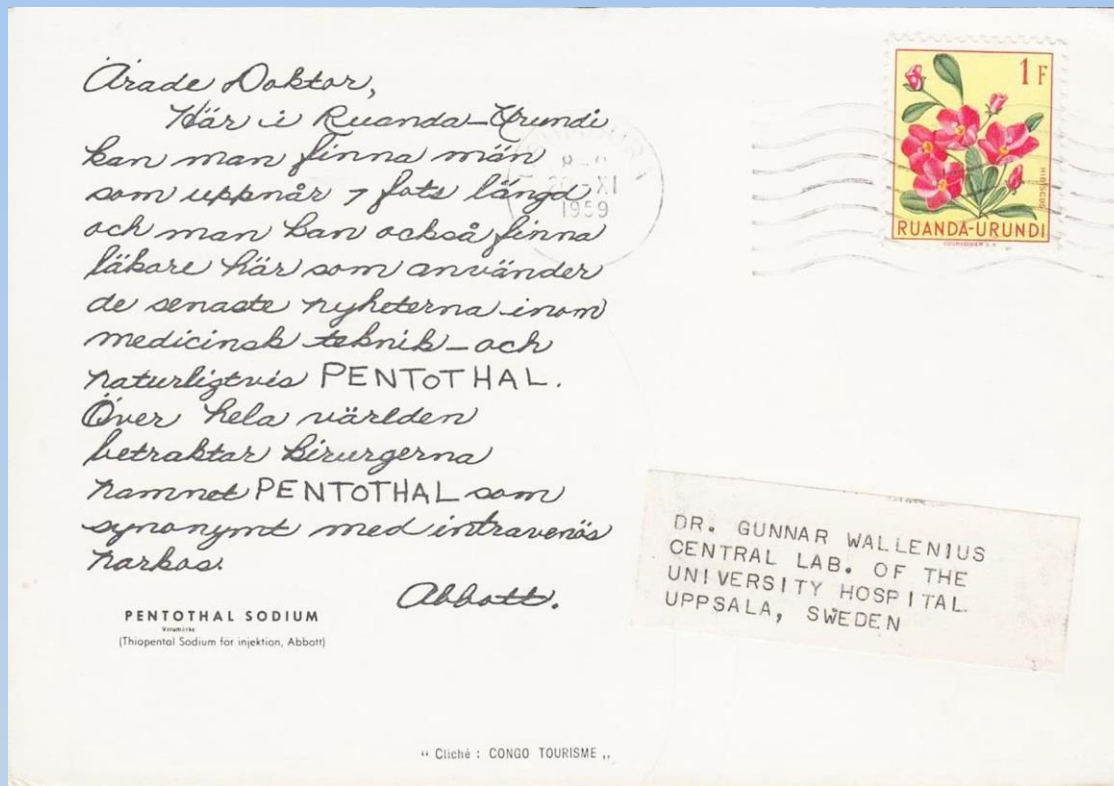 Ärade Doktor,
Här i Ruanda-Urundi
kan man finna män
som uppnår 7 fots längd
och man kan också finna
läkare här som använder
de senaste nyheterna inom
medicinsk teknik - och
naturligtvis PENTOTHAL.
Över hela världen
betraktar kirurgerna
namnet PENTOTHAL som
synonymt med intravenös
narkos.
Abbott.
PENTOTHAL SODIUM
Varumärke
(Thiopental Sodium för injektion, Abbott)
" Cliché : CONGO TOURISME „
XI
1959
1 F
HIBISCUS
RUANDA-URUNDI
DR. GUNNAR WALLENIUS
CENTRAL LAB. OF THE
UNIVERSITY HOSPITAL
UPPSALA, SWEDEN